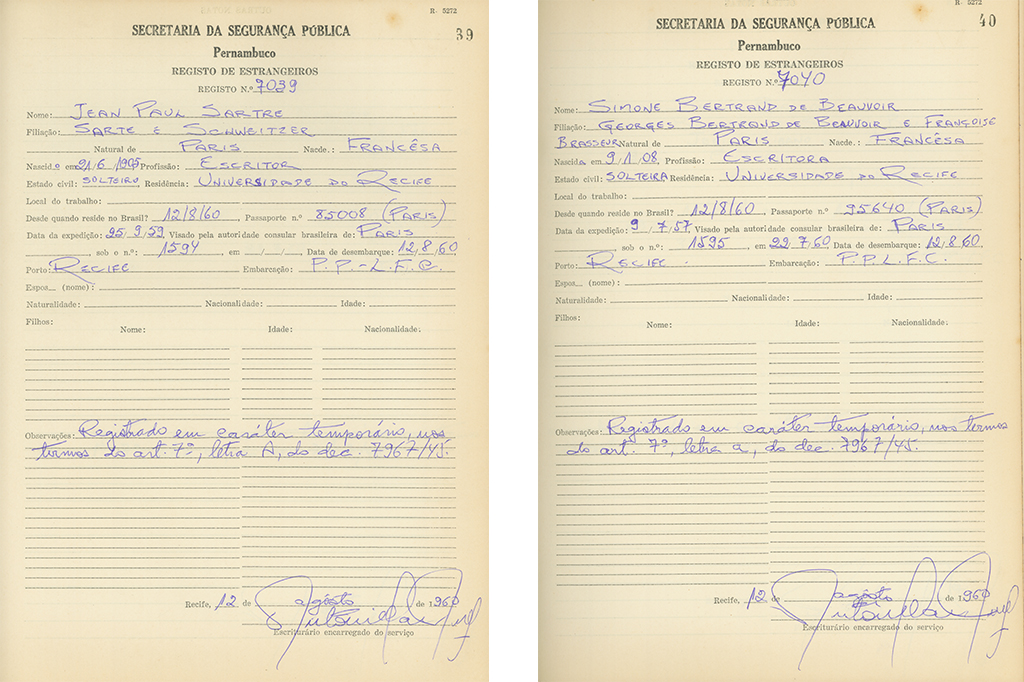 R. 5272
39
SECRETARIA DA SEGURANÇA PÚBLICA
Pernambuco
REGISTO DE ESTRANGEIROS
REGISTO N.º 7039
Nome: JEAN PAUL SARTRE
Filiação: SARTE E SCHWEITZER
Natural de PARIS Nacde.: FRANCÊSA
Nascido em 21/6/1905 Profissão: ESCRITOR
Estado civil: SOLTEIRO Residência: UNIVERSIDADE DO RECIFE
Local do trabalho:
Desde quando reside no Brasil? 12/8/60, Passaporte n.º 85008 (PARIS)
Data da expedição: 25/9/59 Visado pela autoridade consular brasileira de: PARIS
, sob o n.º: 1594, em / / , Data de desembarque: 12/8/60
Porto: RECIFE Embarcação: P.P.-L.F.C.
Espos (nome):
Naturalidade: Nacionalidade: Idade:
Filhos:
Nome: Idade: Nacionalidade:
Observações: Registrado em caráter temporário, nos
termos do art. 7º, letra A, do dec. 7967/45.
Recife, 12 de agôsto de 1960
Escriturário encarregado do serviço
R. 5272
40
SECRETARIA DA SEGURANÇA PÚBLICA
Pernambuco
REGISTO DE ESTRANGEIROS
REGISTO N.º 7040
Nome: SIMONE BERTRAND DE BEAUVOIR
Filiação: GEORGES BERTRAND DE BEAUVOIR E FRANÇOISE
BRASSEUR Natural de PARIS Nacde.: FRANCÊSA
Nascida em 9/1/08. Profissão: ESCRITORA
Estado civil: SOLTEIRA Residência: UNIVERSIDADE DO RECIFE
Local do trabalho:
Desde quando reside no Brasil? 12/8/60, Passaporte n.º 95640 (PARIS)
Data da expedição: 9/7/57 Visado pela autoridade consular brasileira de: PARIS
, sob o n.º: 1595, em 22/7/60 Data de desembarque: 12/8/60
Porto: RECIFE. Embarcação: P.P.L.F.C.
Espos (nome):
Naturalidade: Nacionalidade: Idade:
Filhos:
Nome: Idade: Nacionalidade:
Observações: Registrado em caráter temporário, nos termos
do art. 7º, letra a, do dec. 7967/45.
Recife, 12 de agôsto de 1960
Escriturário encarregado do serviço